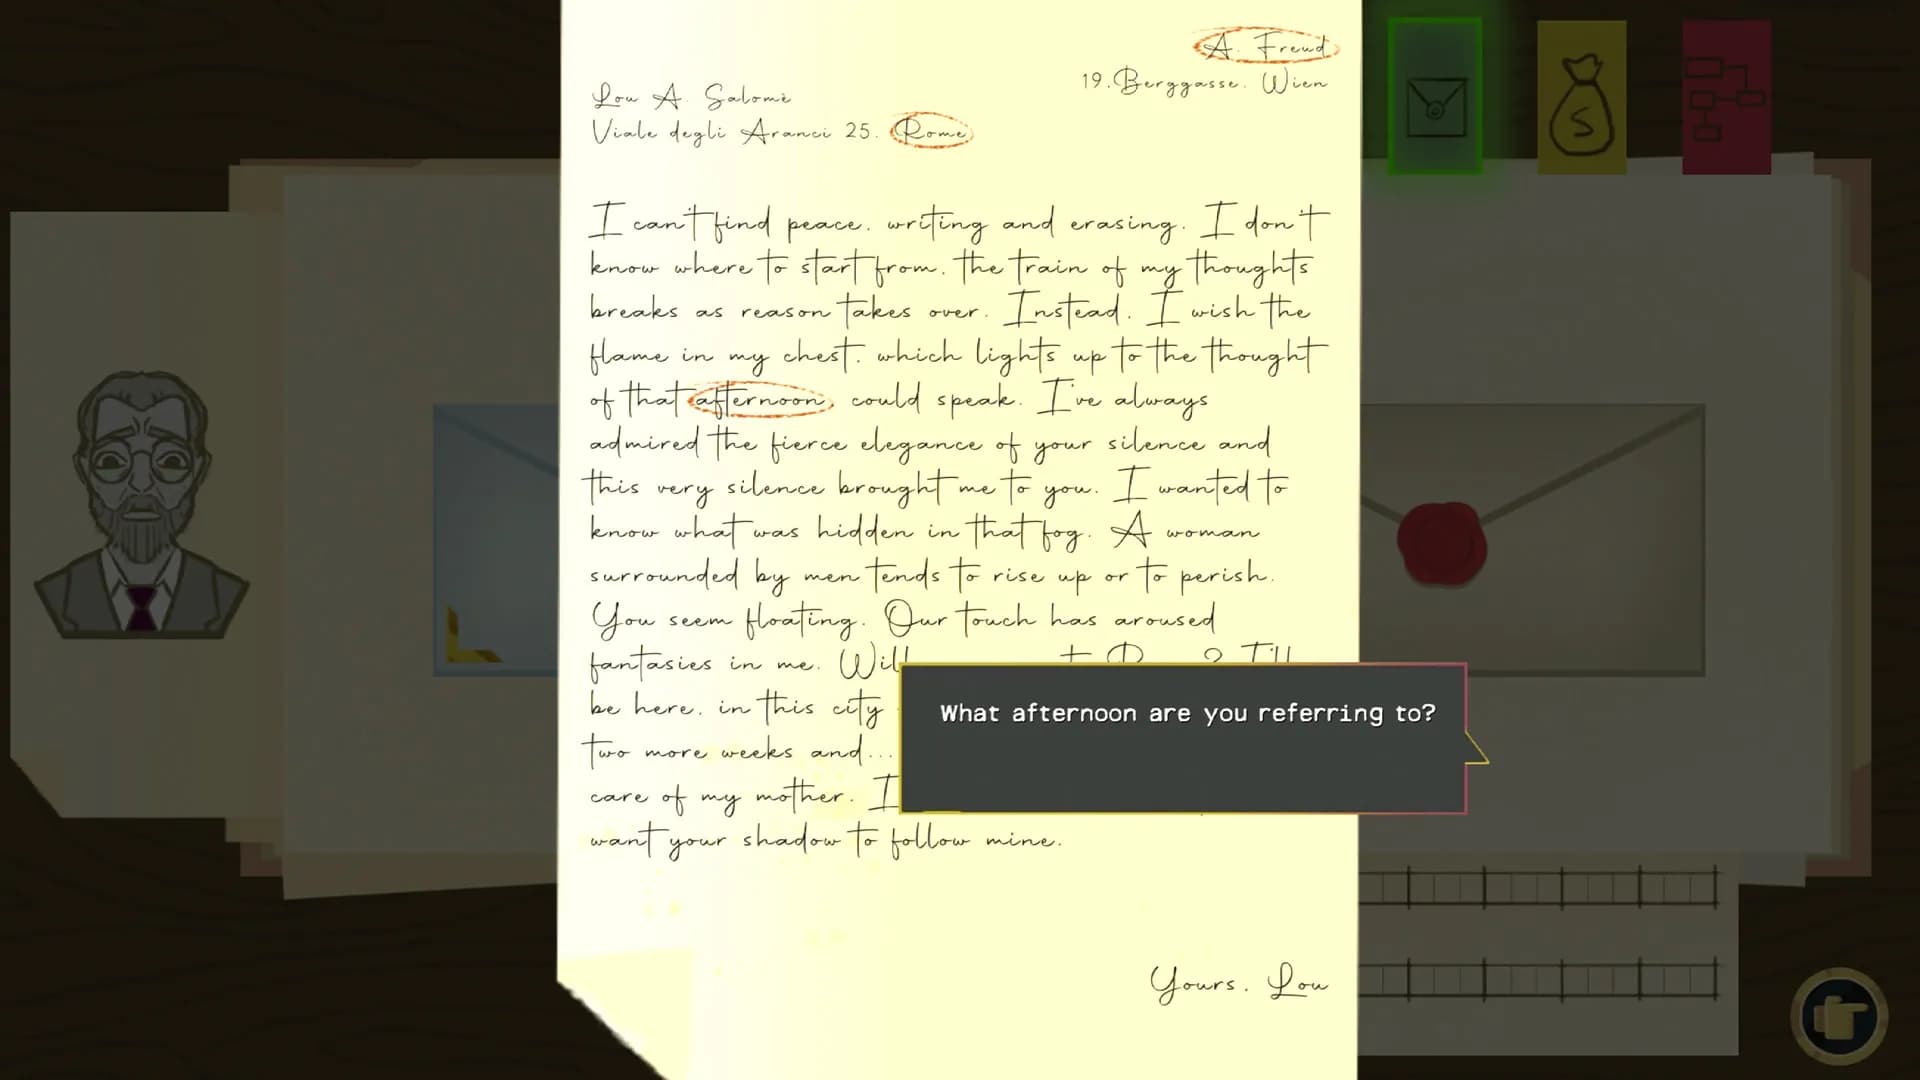 A. Freud
19. Berggasse. Wien
Lou A. Salomè
Viale degli Aranci 25. Rome
I can't find peace. writing and erasing. I don't
know where to start from. the train of my thoughts
breaks as reason takes over. Instead. I wish the
flame in my chest. which lights up to the thought
of that afternoon. could speak. I've always
admired the fierce elegance of your silence and
this very silence brought me to you. I wanted to
know what was hidden in that fog. A woman
surrounded by men tends to rise up or to perish.
You seem floating. Our touch has aroused
fantasies in me. Will ? I'll
be here. in this city
two more weeks and...
care of my mother. I
want your shadow to follow mine.
Yours. Lou
What afternoon are you referring to?
S